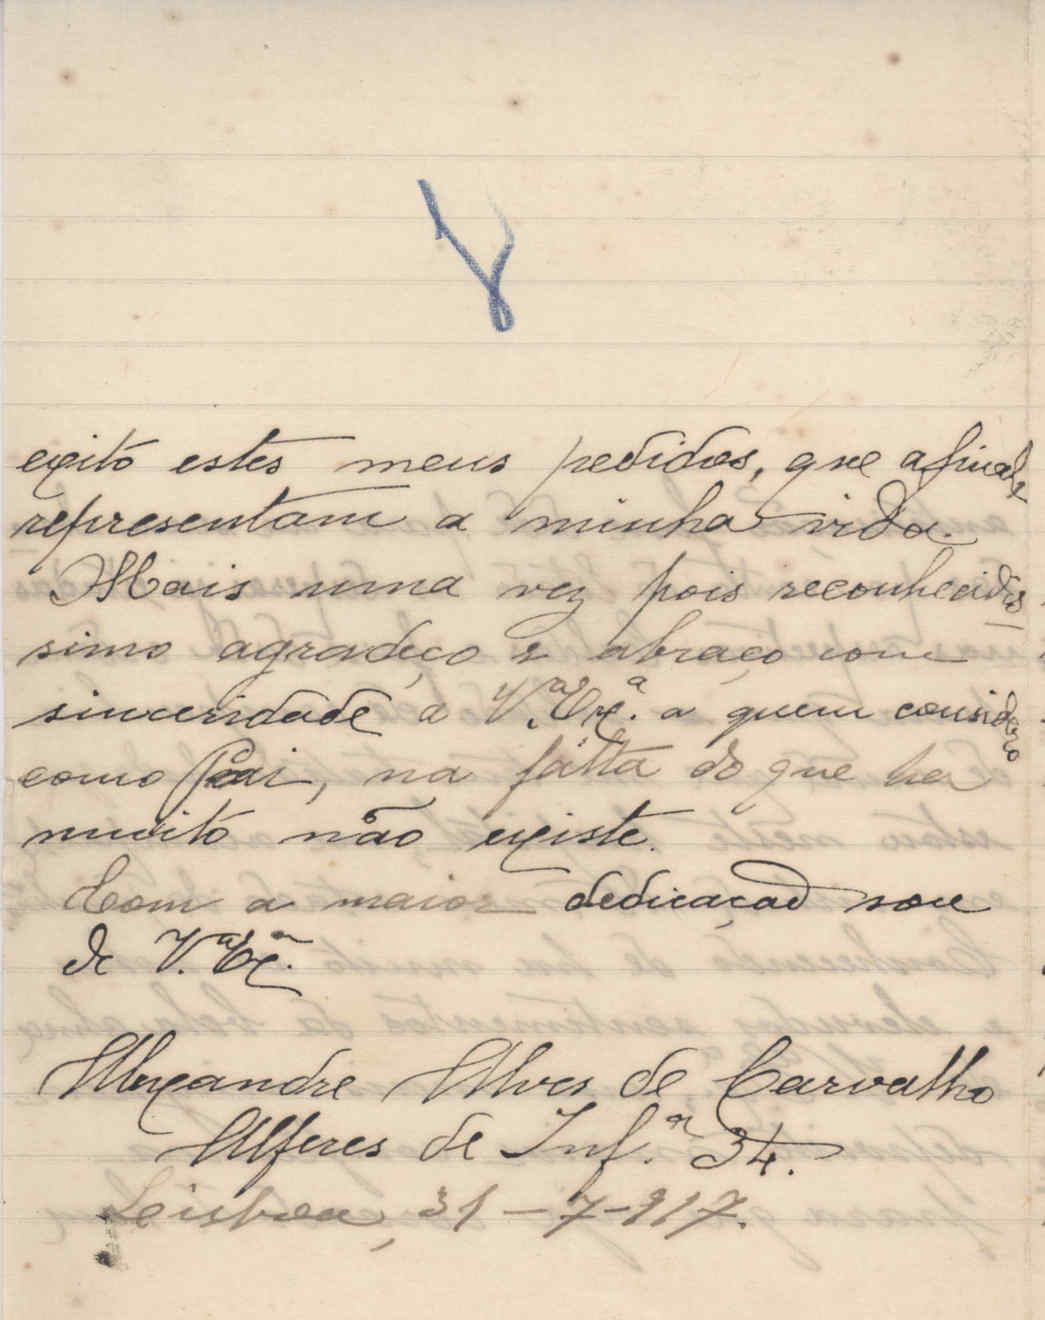 exito estes meus pedidos, que afinal
representam a minha vida.
Mais uma vez pois reconhecidis
simo agradeço e abraço com
sinceridade a V.ª Ex.ª a quem considero
como Pai, na falta do que ha
muito não existe.
Com a maior dedicação sou
de V.ª Ex.ª
Alexandre Alves de Carvalho
Alferes de Inf.ª 34.
Lisboa, 31-7-917.